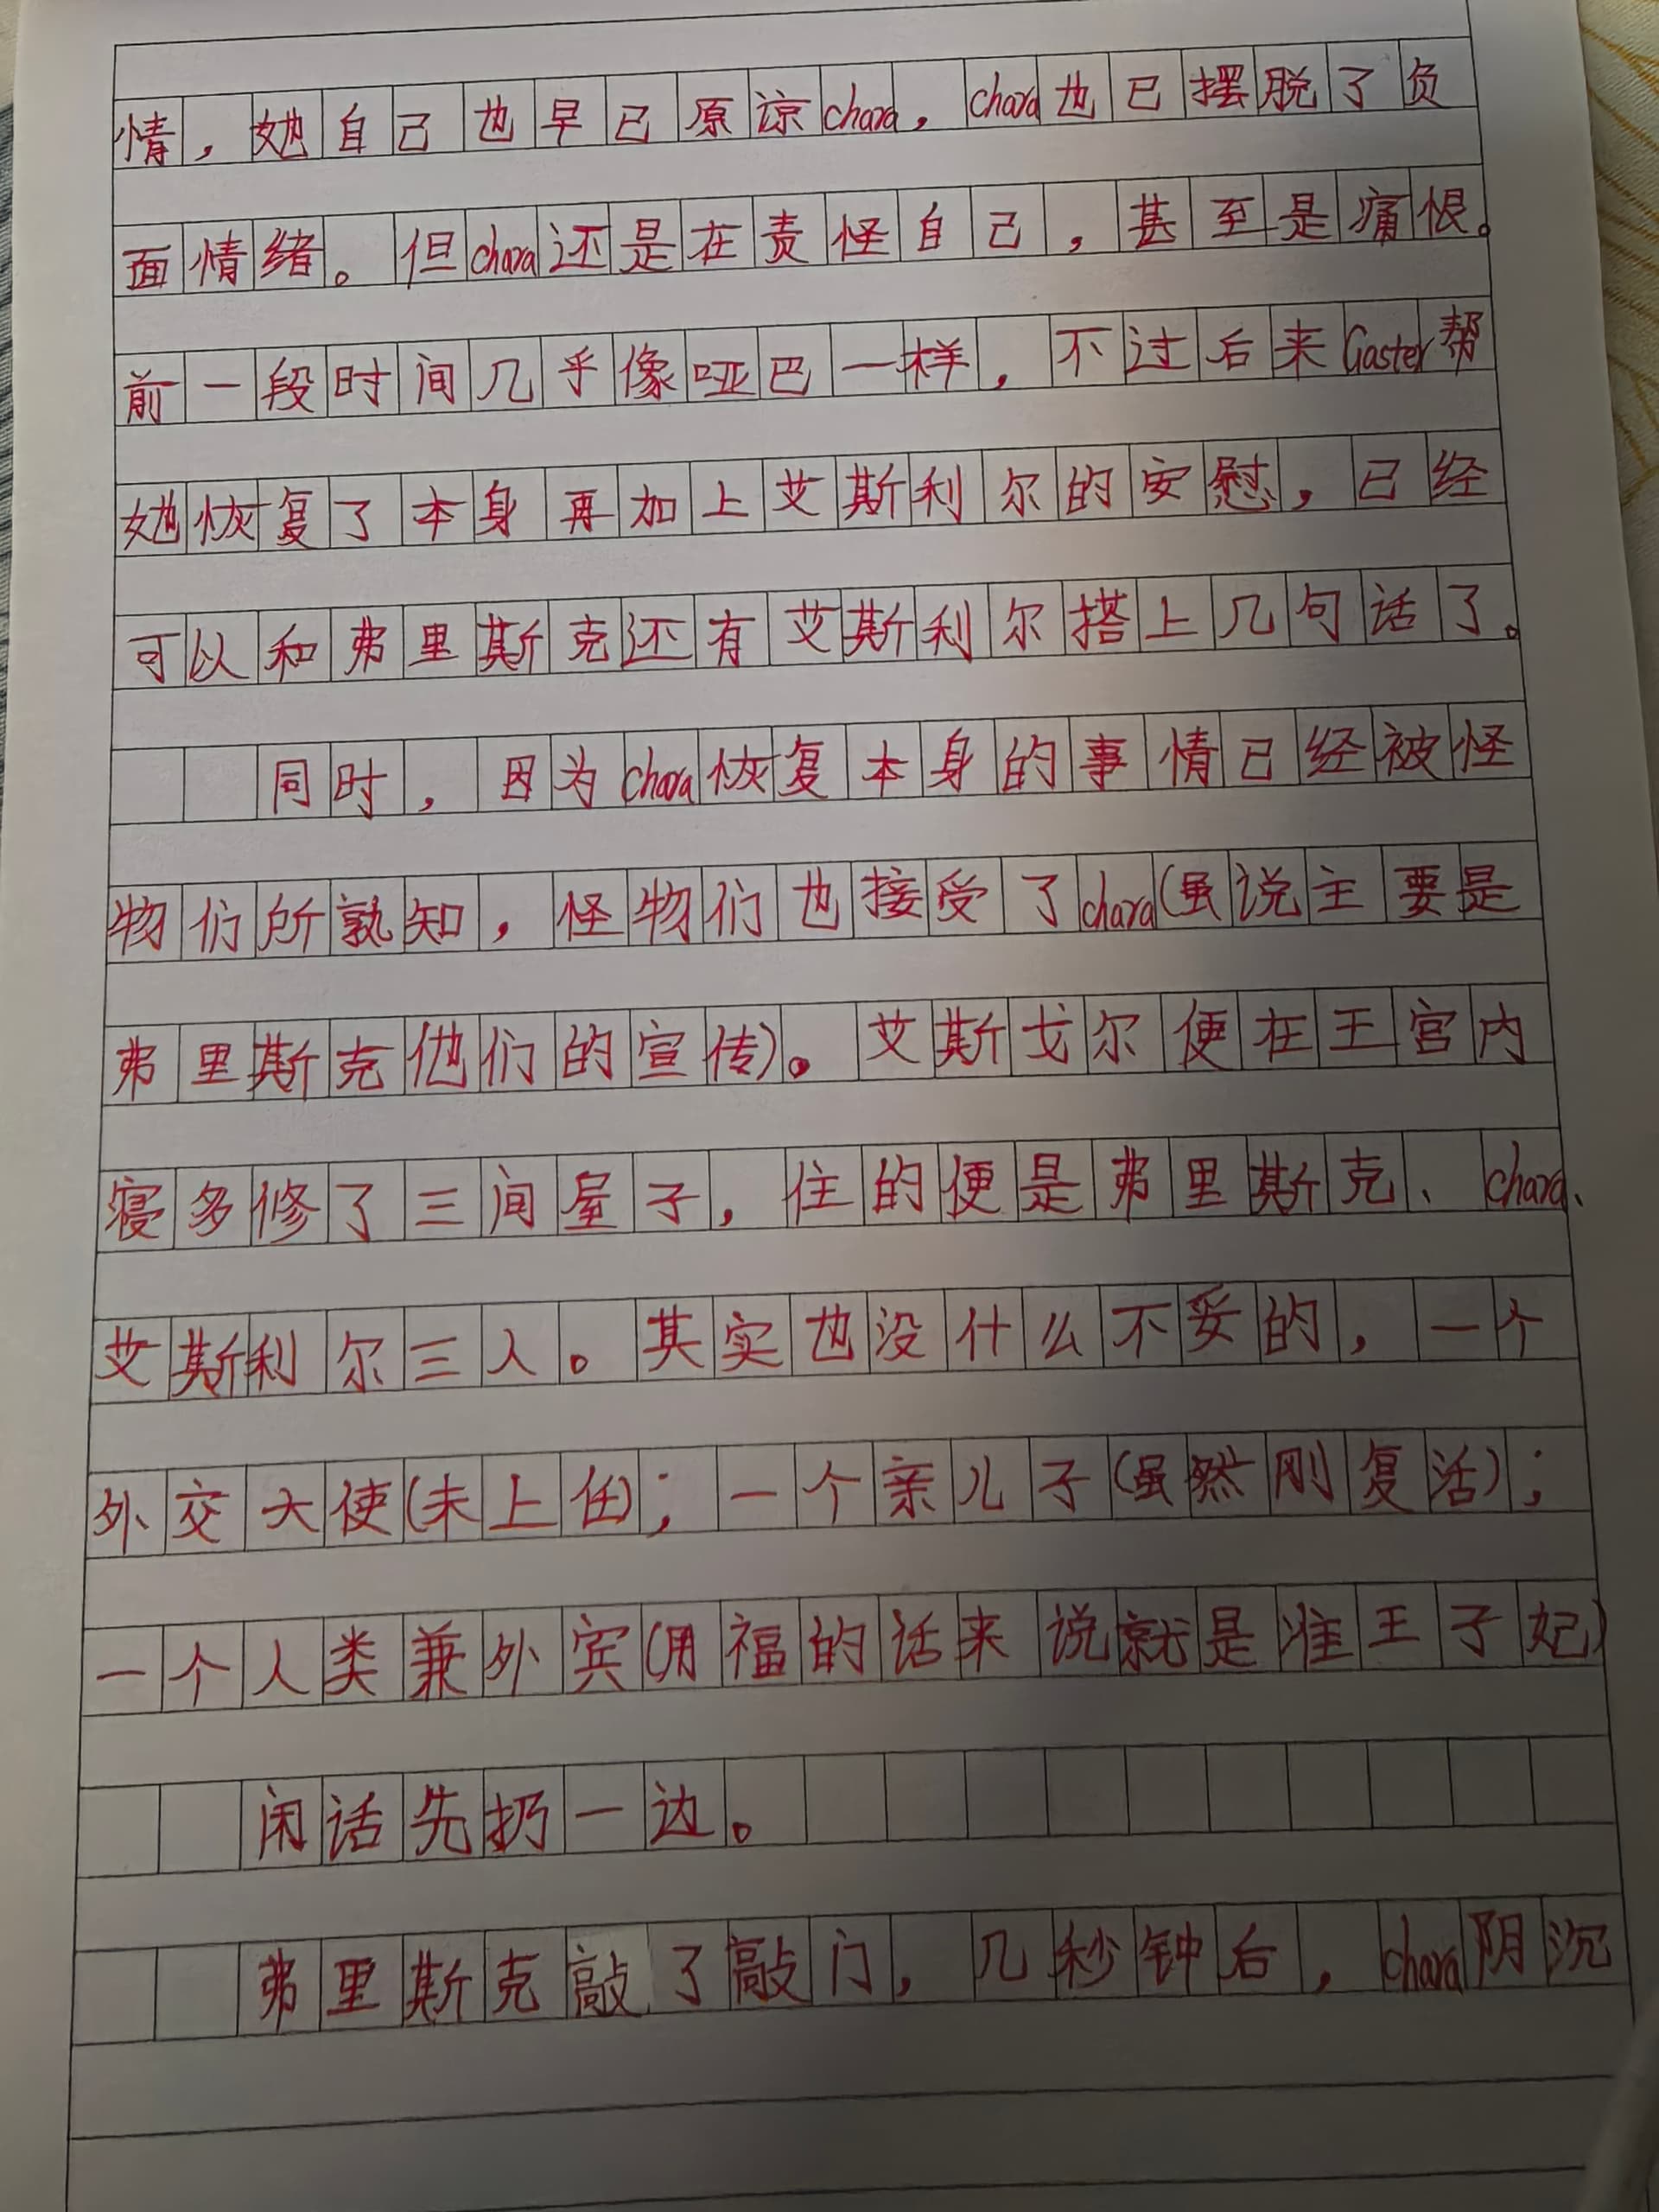 情，她自己也早已原谅chara，chara也已摆脱了负
面情绪。但chara还是在责怪自己，甚至是痛恨。
前一段时间几乎像哑巴一样，不过后来Gaster帮
她恢复了本身再加上艾斯利尔的安慰，已经
可以和弗里斯克还有艾斯利尔搭上几句话了。
同时，因为chara恢复本身的事情已经被怪
物们所熟知，怪物们也接受了chara(虽说主要是
弗里斯克他们的宣传)。艾斯戈尔便在王宫内
寝多修了三间屋子，住的便是弗里斯克、chara、
艾斯利尔三人。其实也没什么不妥的，一个
外交大使(未上任)；一个亲儿子(虽然刚复活)；
一个人类兼外宾(用福的话来说就是准王子妃)
闲话先扔一边。
弗里斯克敲了敲门，几秒钟后，chara阴沉